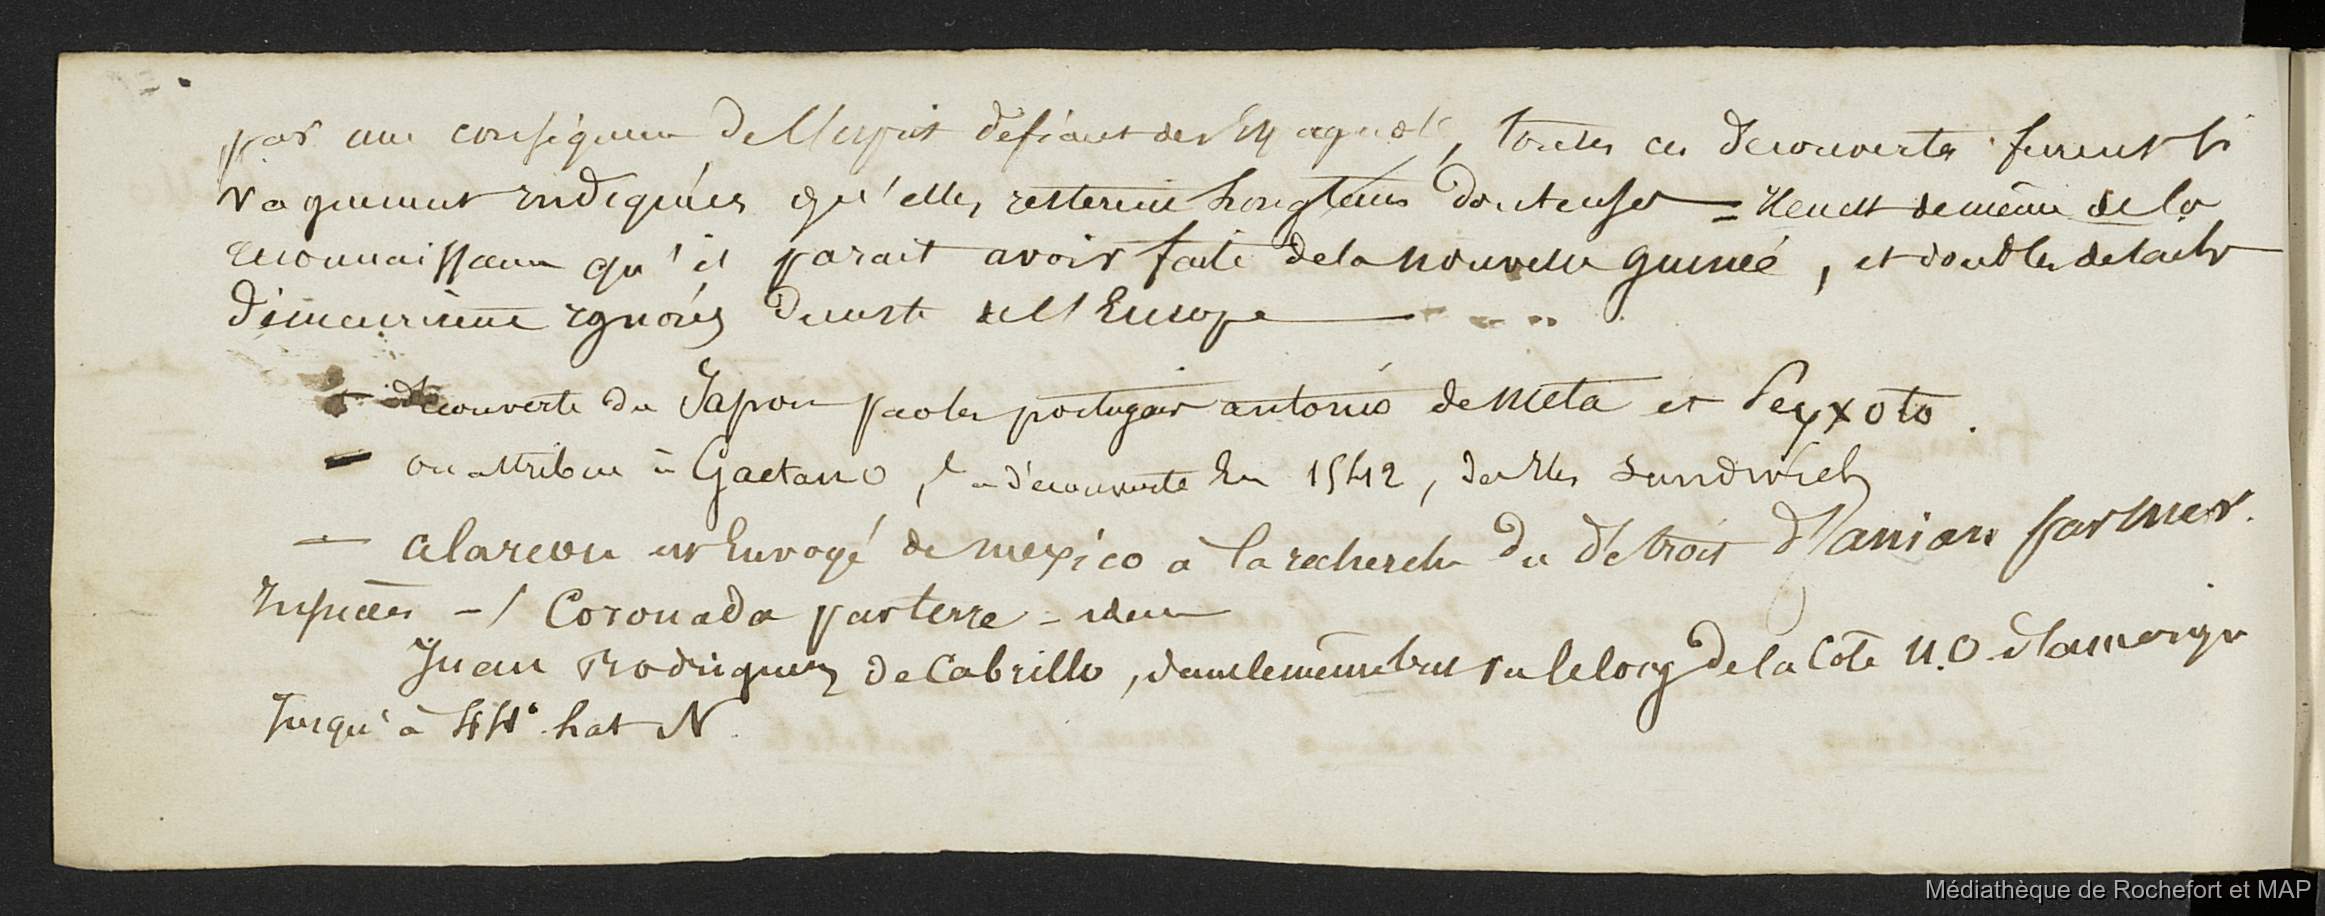 par une conséquence de l'esprit défiant des Espagnols, toutes ces découvertes furent si
vaguement indiquées qu'elles restèrent longtems douteuses = Il en est de même de la
reconnaissance qu'il parait avoir faite de la nouvelle guinée, et dont les détails
demeurèrent ignorés du reste de l'Europe
— découverte du Japon par les portugais antonio de Meta et Peyxoto.
— on attribue à Gaetano, la découverte En 1542, des Iles Sandwich
— alarcon est Envoyé de mexico à la recherche du détroit d'anian par mer.
— Coronada par terre = idem
Juan Rodriguez de Cabrillo, dans le même but vu le long de la Cote N.O. d'amerique
jusqu'à 44° Lat N.
Médiathèque de Rochefort et MAP